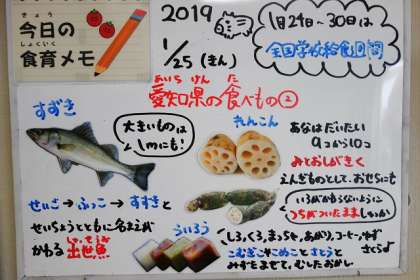 きょう
今日の
しょくいく
食育メモ
2019
1/25(きん)
1月24日~30日は
全国学校給食週間
あいちけん た
愛知県の食べもの②
すずき
大きいものは
1mにも!
せいご→ふっこ→すずきと
せいちょうとともに名まえが
かわる出世魚
しゅっせうお
れんこん
あなはだいたい
9こから10こ
みとおしがきく
えんぎものとして、おせちにも
いろがかわらないように
つちがついたまましゅっか
ういろう
しろ、くろ、まっちゃ、あがり、コーヒー、ゆず
さくら
こむぎこやこめことさとうと
みずをまぜて、むしたおかし